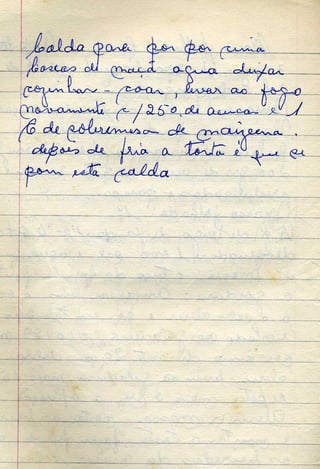 Calda para por por cima
Cascas de maçã agua deixar
cozinhar - coar, levar ao fogo
novamente c/250, de acucar e 1
C de sobremesa de mayzena.
depois de fria a torta é que se
pom esta calda